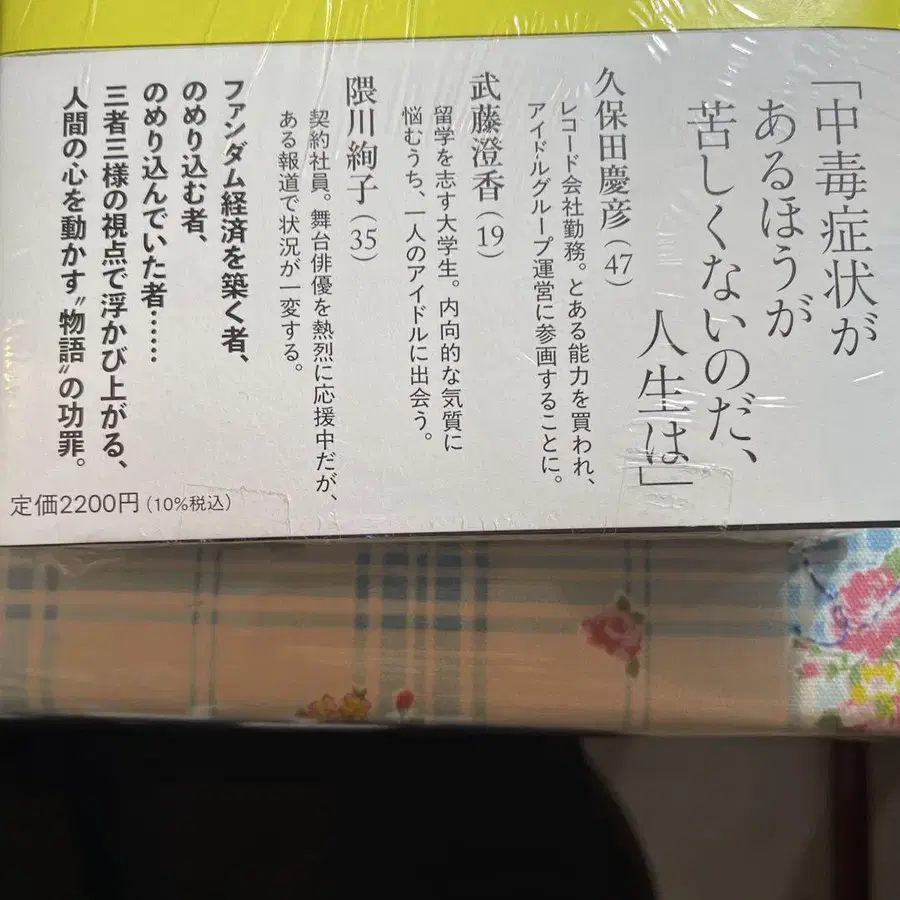 「中毒症状が
あるほうが
苦しくないのだ、
人生は」
久保田慶彦(47)
レコード会社勤務。とある能力を買われ、
アイドルグループ運営に参画することに。
武藤澄香(19)
留学を志す大学生。内向的な気質に
悩むうち、一人のアイドルに出会う。
隈川絢子(35)
契約社員。舞台俳優を熱烈に応援中だが、
ある報道で状況が一変する。
ファンダム経済を築く者、
のめり込む者、
のめり込んでいた者……
三者三様の視点で浮かび上がる、
人間の心を動かす〝物語〟の功罪。
定価2200円(10%税込)